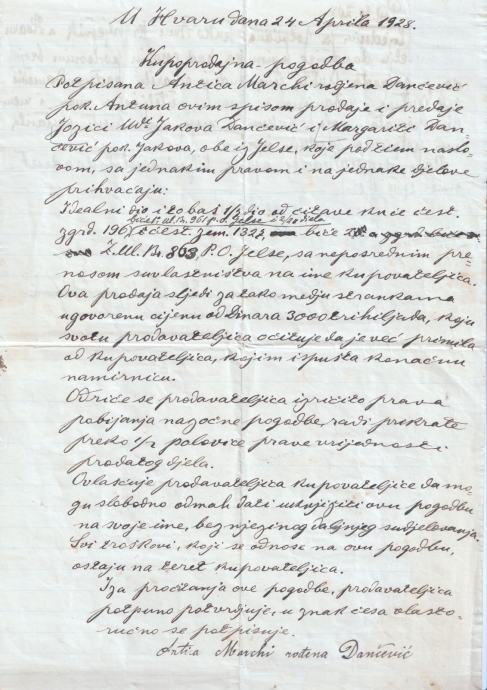 U Hvaru dana 24 Aprila 1928.
Kupoprodajna pogodba
Potpisana Antica Marchi rodjena Dančević
pok. Antuna ovim spisom prodaje i predaje
Jozici Ud. Jakova Dančević i Margariti Dan-
čević pok. Jakova, obe iz Jelse, koje pod istim naslo-
vom, sa jednakim pravom i na jednake djelove
prihvaćaju:
Idealni dio i to baš 1/3 dio od čitave kuće čest.
zgrd. 196 čest. zem. 1322,
Z. Ul. Br. 863 P.O. Jelse, sa neposrednim pre-
nosom suvlastništva na ime kupovateljica.
Ova prodaja sljedi za tako medju strankama
ugovorenu cijenu od Dinara 3000 tri hiljada, koju
svotu prodavateljica očituje da je već primila
od kupovateljica, kojim ispušta konačnu
namirnicu.
Odriče se prodavateljica izričito prava
pobijanja nazočne pogodbe, radi prikrate
preko 1/2 polovice prave vrijednosti
prodatog djela.
Ovlašćuje prodavateljica kupovateljice da mo-
gu slobodno odmah dati uknjižiti ovu pogodbu
na svoje ime, bez njezinog daljnjeg sudjelovanja.
Svi troškovi, koji se odnose na ovu pogodbu,
ostaju na teret kupovateljica.
Iza pročitanja ove pogodbe, prodavateljica
potpuno potvrdjuje, u znak česa vlasto-
ručno se potpisuje.
Antica Marchi rođena Dančević